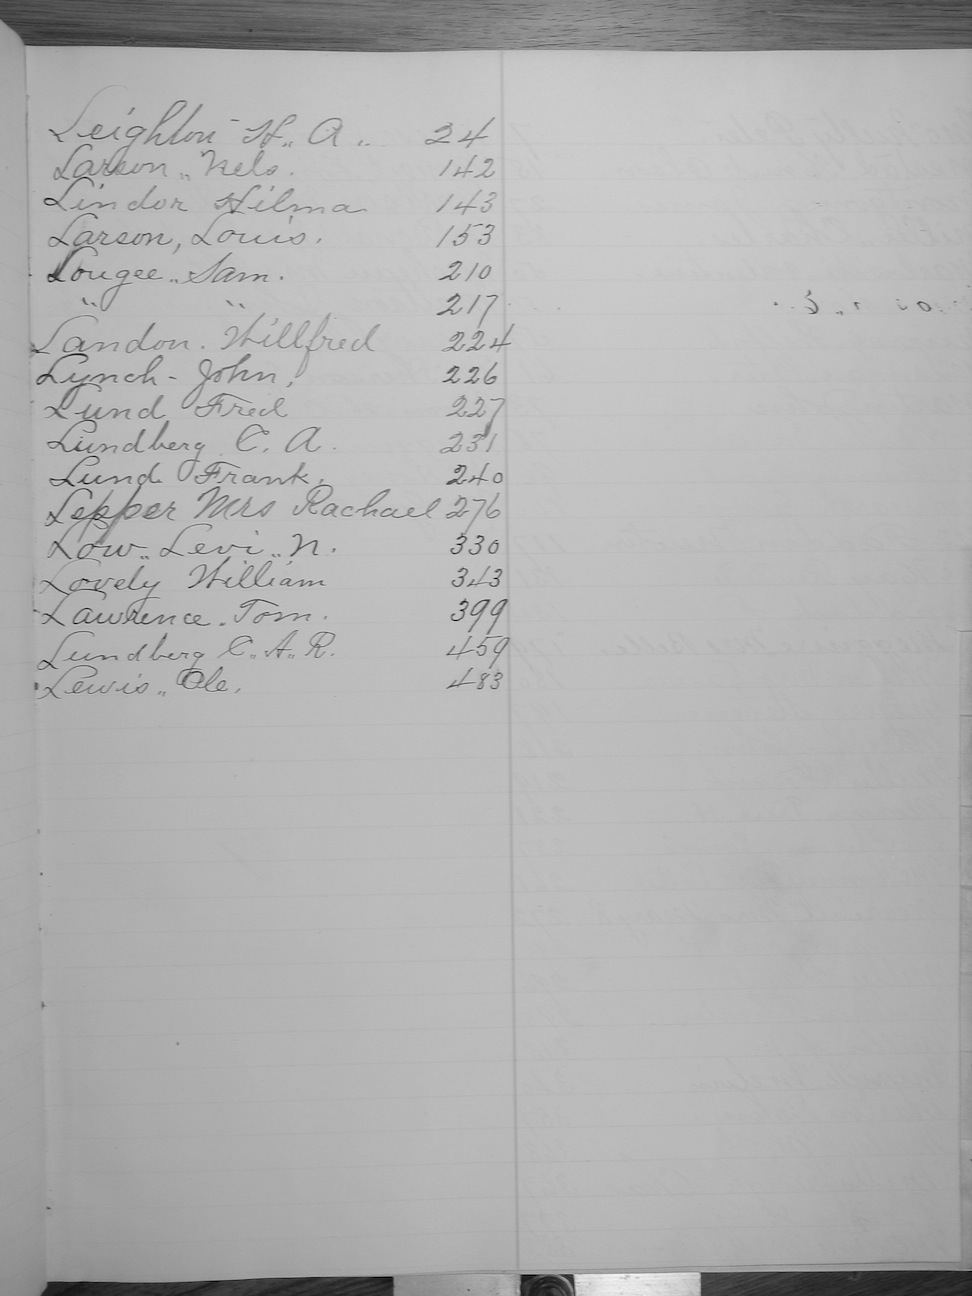 Leighton H. A. 24
Larson, Nels. 142
Lindor Hilma 143
Larson, Louis. 153
Lougee, Sam. 210
" " 217
Landon. Willfred 224
Lynch - John, 226
Lund Fred 227
Lundberg C. A. 231
Lund Frank. 240
Lepper Mrs Rachael 276
Low, Levi, N. 330
Lovely William 343
Lawrence. Tom. 399
Lundberg C. A. R. 459
Lewis, Ole. 483